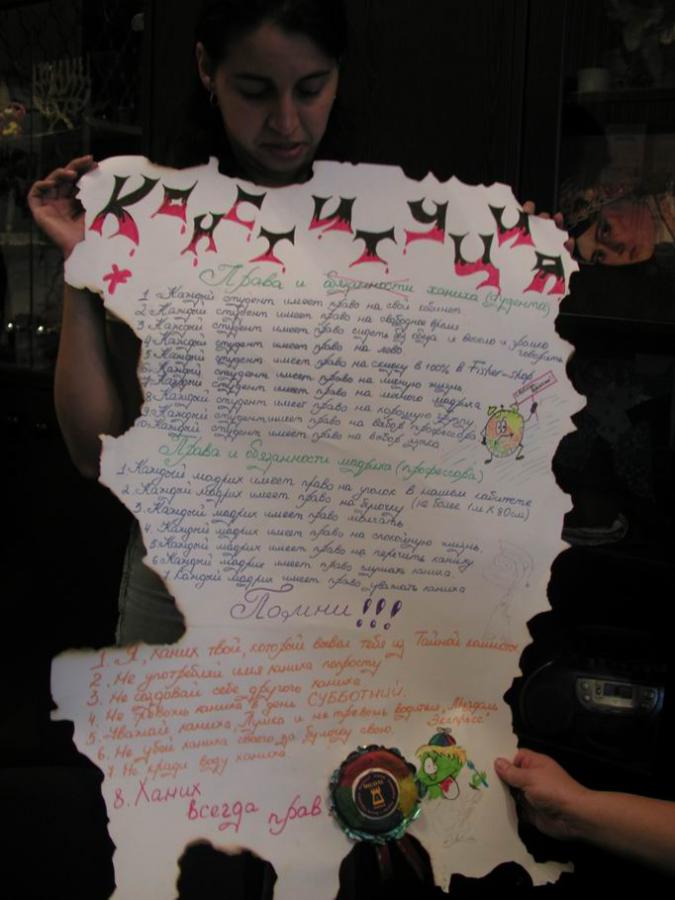 Конституция
Права и обязанности ханиха (студента)
1 Каждый студент имеет право на свой кабинет
2 Каждый студент имеет право на свободное время
3 Каждый студент имеет право сидеть и весело и громко говорить
4 Каждый студент имеет право на лево
5 Каждый студент имеет право на скидку в 100% в Fisher-shop
6 Каждый студент имеет право на личную жизнь
7 Каждый студент имеет право на личного мадриха
8 Каждый студент имеет право на хорошую
9 Каждый студент имеет право на выбор профессора
10 Каждый студент имеет право на выбор
Права и обязанности мадриха (профессора)
1 Каждый мадрих имеет право на уголок в нашем кабинете
2. Каждый мадрих имеет право на булочку (не более 1м X 80см)
3. Каждый мадрих имеет право молчать
4. Каждый мадрих имеет право на спокойную жизнь.
5 Каждый мадрих имеет право на перечить ханиху
6 Каждый мадрих имеет право слушать ханиха.
7 Каждый мадрих имеет право уважать ханиха
Помни!!!
1. Я, ханих твой, который вывел тебя из Тайной комнаты
2. Не употребляй имя ханиха попросту
3. Не создавай себе другого ханиха
4. Не тревожь ханиха в день СУББОТНИЙ.
5. Уважай ханиха, и не тревожь "Мигдаль Экспресс"
6. Не убей ханиха своего за булочку свою.
7. Не кради воду ханиха
8. Ханих
всегда прав